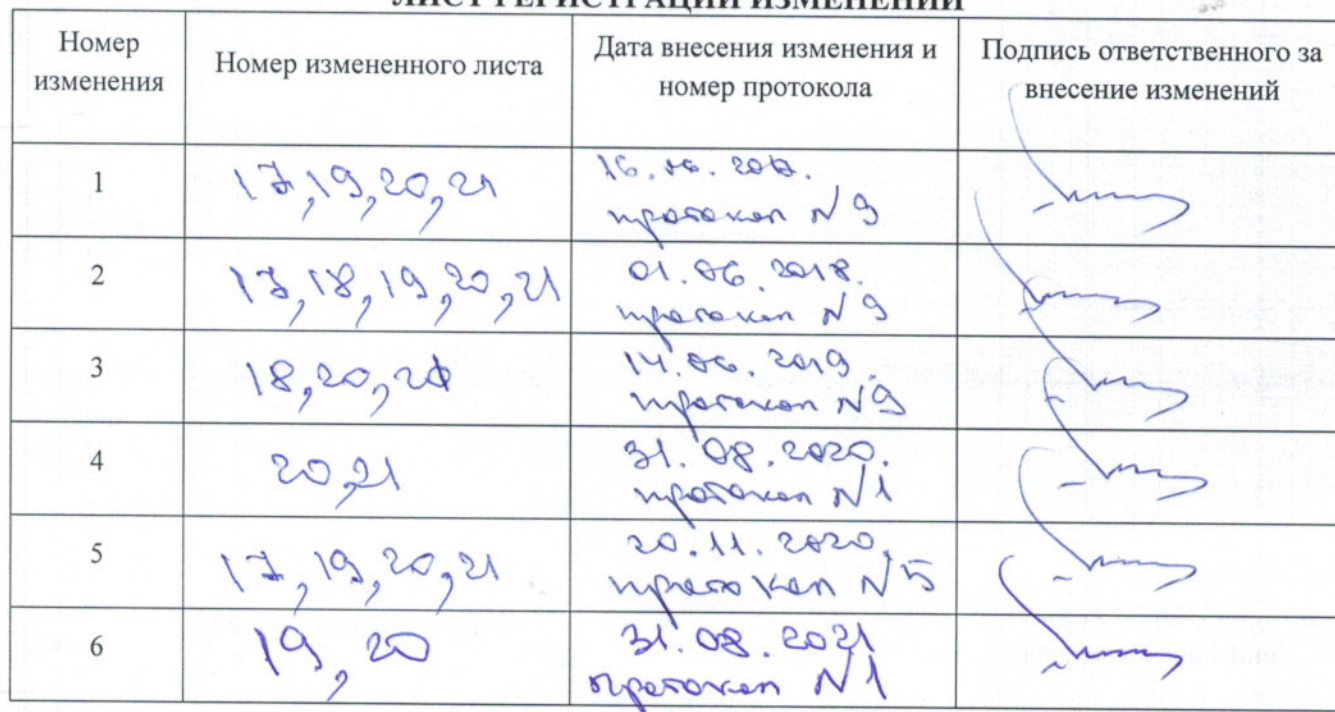 ЛИСТ РЕГИСТРАЦИИ ИЗМЕНЕНИЙ
Номер изменения
Номер измененного листа
Дата внесения изменения и номер протокола
Подпись ответственного за внесение изменений
1
17,19,20,21
протокол №9
2
17,18,19,20,21
01.06.2018.
протокол №9
3
18,20,21
14.06.2019.
протокол №9
4
20,21
31.08.2020.
протокол №1
5
17,19,20,21
20.11.2020.
протокол №5
6
19,20
31.08.2021
протокол №1